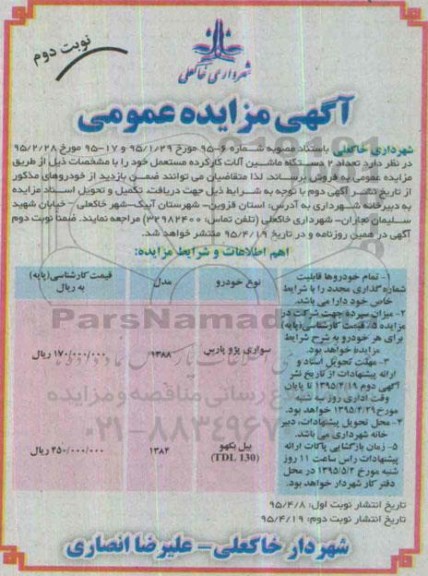 نوبت دوم
شهرداری خاکعلی
آگهی مزایده عمومی
شهرداری خاکعلی باستناد مصوبه شماره ۶-۹۵ مورخ ۹۵/۱/۲۹ و ۱۷-۹۵ مورخ ۹۵/۲/۲۸
در نظر دارد تعداد ۲ دستگاه ماشین آلات کارکرده مستعمل خود را با مشخصات ذیل از طریق
مزایده عمومی به فروش برساند. لذا متقاضیان می توانند ضمن بازدید از خودروهای مذکور
از تاریخ نشر آگهی دوم با توجه به شرایط ذیل جهت دریافت، تکمیل و تحویل اسناد مزایده
به دبیرخانه شهرداری به آدرس: استان قزوین- شهرستان آبیک- شهر خاکعلی - خیابان شهید
سلیمان نجاران- شهرداری خاکعلی (تلفن تماس: ۳۲۹۸۲۴۰۰) مراجعه نمایند. ضمنا نوبت دوم
آگهی در همین روزنامه و در تاریخ ۹۵/۴/۱۹ منتشر خواهد شد.
اهم اطلاعات و شرایط مزایده:
۱- تمام خودروها قابلیت
شماره گذاری مجدد را با شرایط
خاص خود دارا می باشد.
۲- میزان سپرده جهت شرکت در
مزایده ۵٪ قیمت کارشناسی (پایه)
برای هر خودرو به شرح شرایط
مزایده خواهد بود.
۳- مهلت تحویل اسناد و
ارائه پیشنهادات از تاریخ نشر
آگهی دوم ۱۳۹۵/۴/۱۹ تا پایان
وقت اداری روز سه شنبه
مورخ ۱۳۹۵/۴/۲۹ خواهد بود.
۴- محل تحویل پیشنهادات، دبیر
خانه شهرداری می باشد.
۵- زمان بازگشایی پاکات ارائه
پیشنهادات راس ساعت ۱۱ روز
شنبه مورخ ۱۳۹۵/۵/۲ در محل
دفتر کار شهردار خواهد بود.
نوع خودرو مدل قیمت کارشناسی (پایه) به ریال
سواری پژو پارس ۱۳۸۸ ۱۷۰/۰۰۰/۰۰۰ ریال
بیل بکهو ۱۳۸۲ ۲۵۰/۰۰۰/۰۰۰ ریال
(TDL 130)
ParsNamad
۰۲۱-۸۸۳۴۹۶۷۰
تاریخ انتشار نوبت اول: ۹۵/۴/۸
تاریخ انتشار نوبت دوم: ۹۵/۴/۱۹
شهردار خاکعلی - علیرضا انصاری